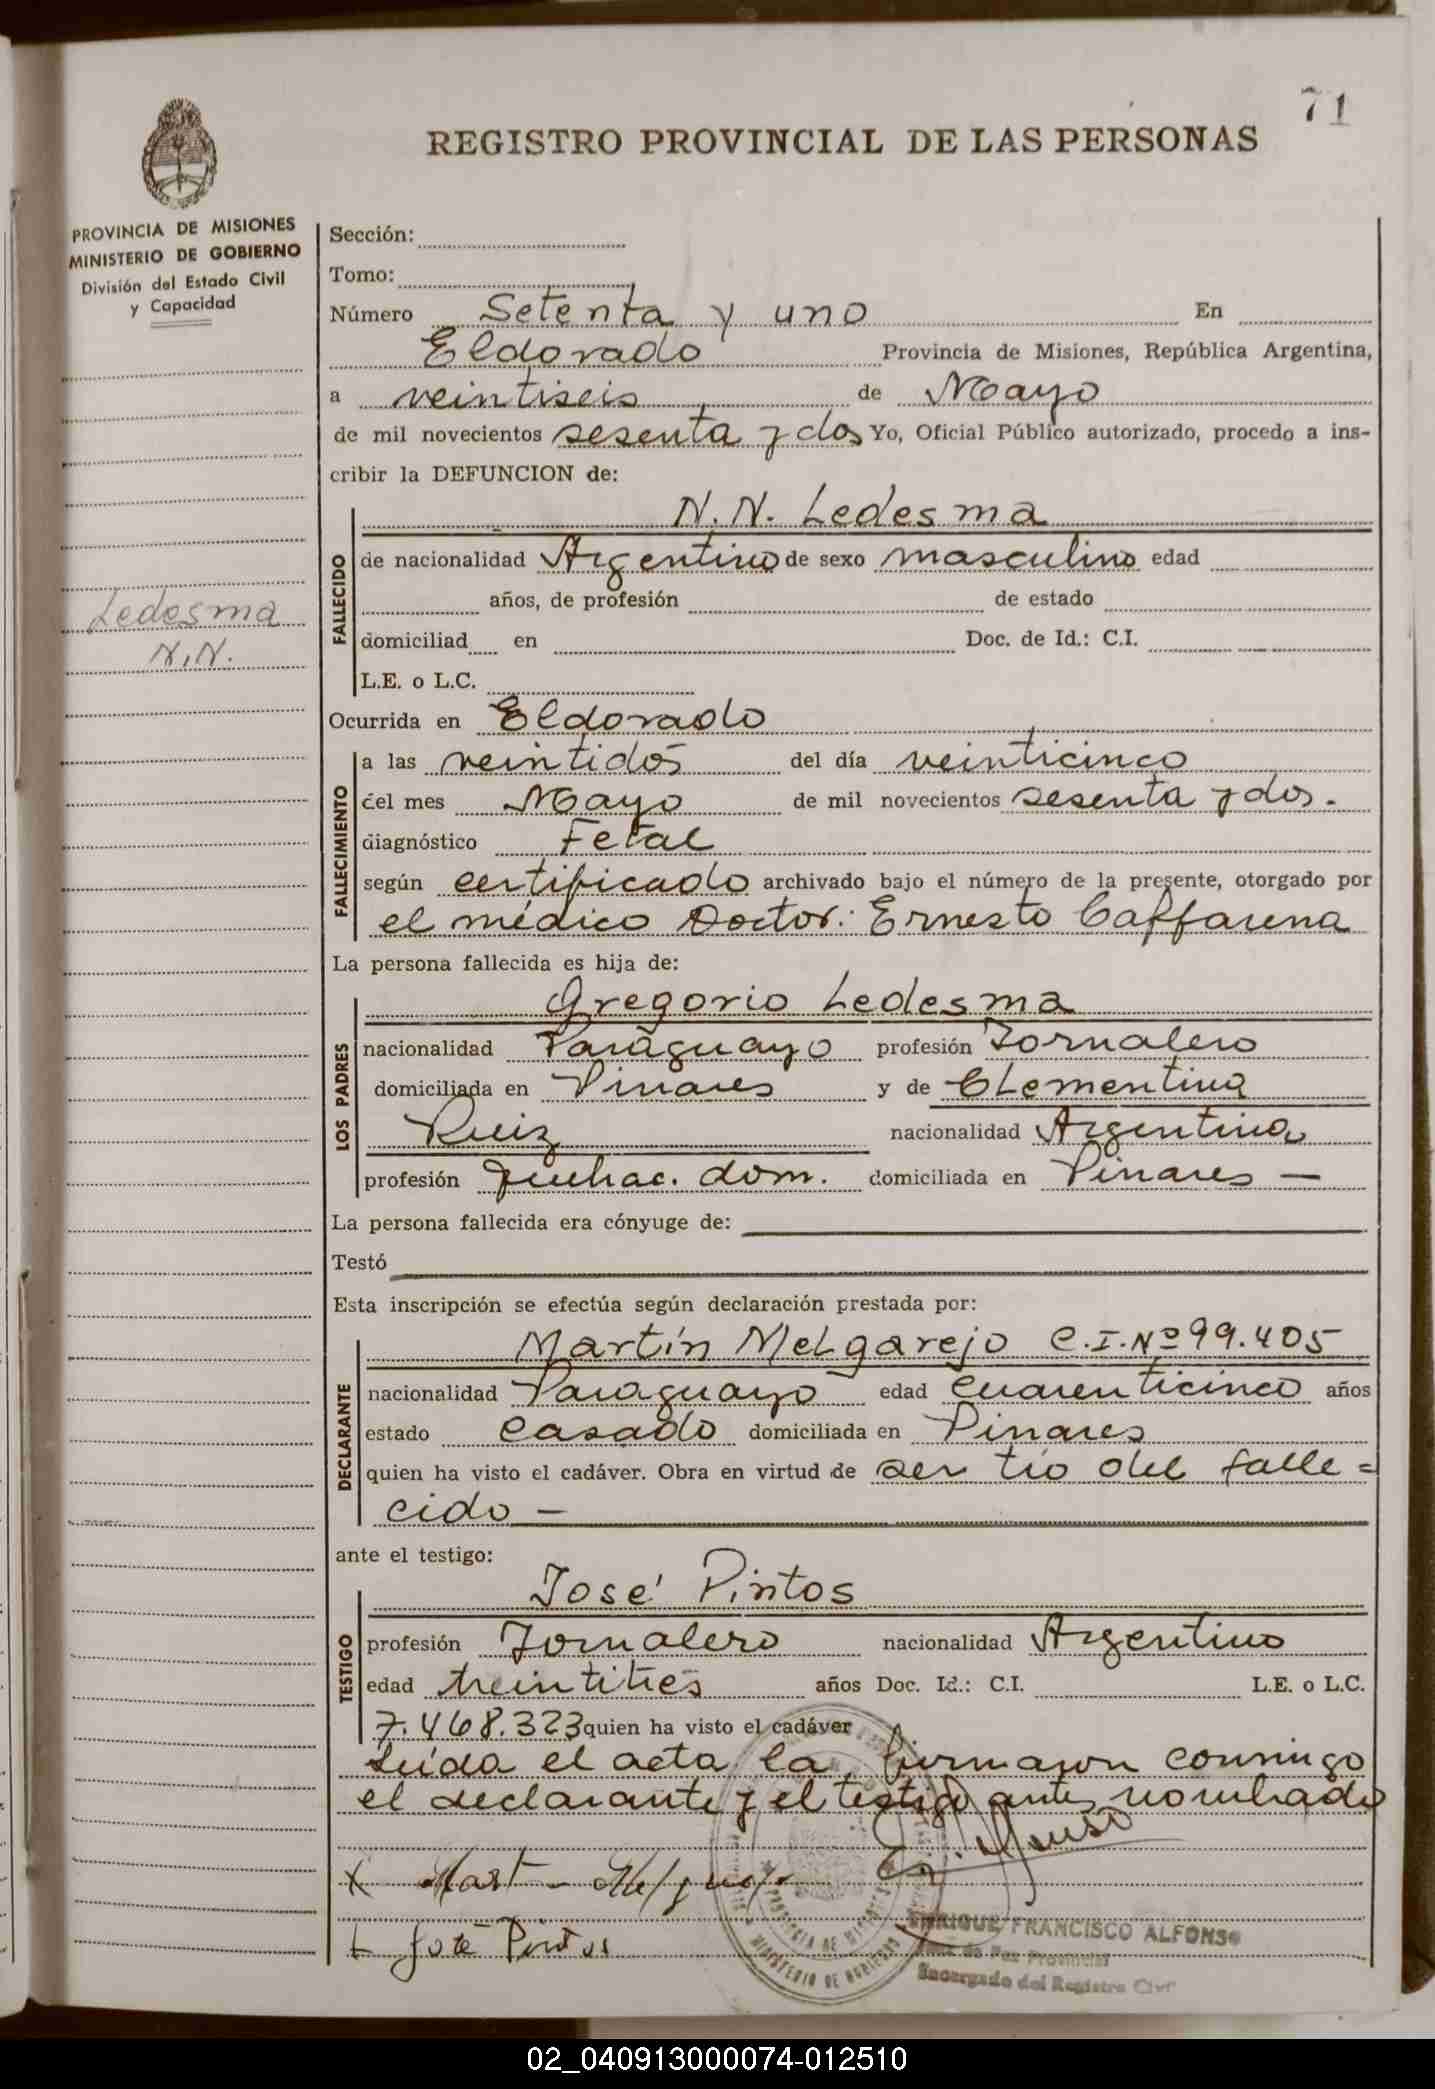 71
REGISTRO PROVINCIAL DE LAS PERSONAS
PROVINCIA DE MISIONES
MINISTERIO DE GOBIERNO
División del Estado Civil
y Capacidad
Ledesma
N.N.
Sección:
Tomo:
Número Setenta y uno En
Eldorado Provincia de Misiones, República Argentina,
a veintiseis de Mayo
de mil novecientos sesenta y dos Yo, Oficial Público autorizado, procedo a ins-
cribir la DEFUNCION de:
FALLECIDO
N. N. Ledesma
de nacionalidad Argentino de sexo masculino edad
años, de profesión de estado
domiciliad en Doc. de Id.: C.I.
L.E. o L.C.
Ocurrida en Eldorado
FALLECIMIENTO
a las veintidós del día veinticinco
del mes Mayo de mil novecientos sesenta y dos.
diagnóstico Fetal
según certificado archivado bajo el número de la presente, otorgado por
el médico Doctor: Ernesto Caffarena
La persona fallecida es hija de:
LOS PADRES
Gregorio Ledesma
nacionalidad Paraguayo profesión Jornalero
domiciliada en Pinares y de Clementina
Ruiz nacionalidad Argentina
profesión Quehac. dom. domiciliada en Pinares —
La persona fallecida era cónyuge de:
Testó
Esta inscripción se efectúa según declaración prestada por:
DECLARANTE
Martín Melgarejo C.I.Nº 99.405
nacionalidad Paraguayo edad cuarenticinco años
estado Casado domiciliada en Pinares
quien ha visto el cadáver. Obra en virtud de ser tío del falle=
cido —
ante el testigo:
TESTIGO
José Pintos
profesión Jornalero nacionalidad Argentino
edad treintitrés años Doc. Id.: C.I. L.E. o L.C.
7.468.323 quien ha visto el cadáver
Leída el acta la firmaron conmigo
el declarante y el testigo antes nombrado
X Mart
José Pintos
PROVINCIA DE MISIONES
MINISTERIO DE GOBIERNO
ENRIQUE FRANCISCO ALFONSO
Juez de Paz Provincial
Encargado del Registro Civil
02_040913000074-012510